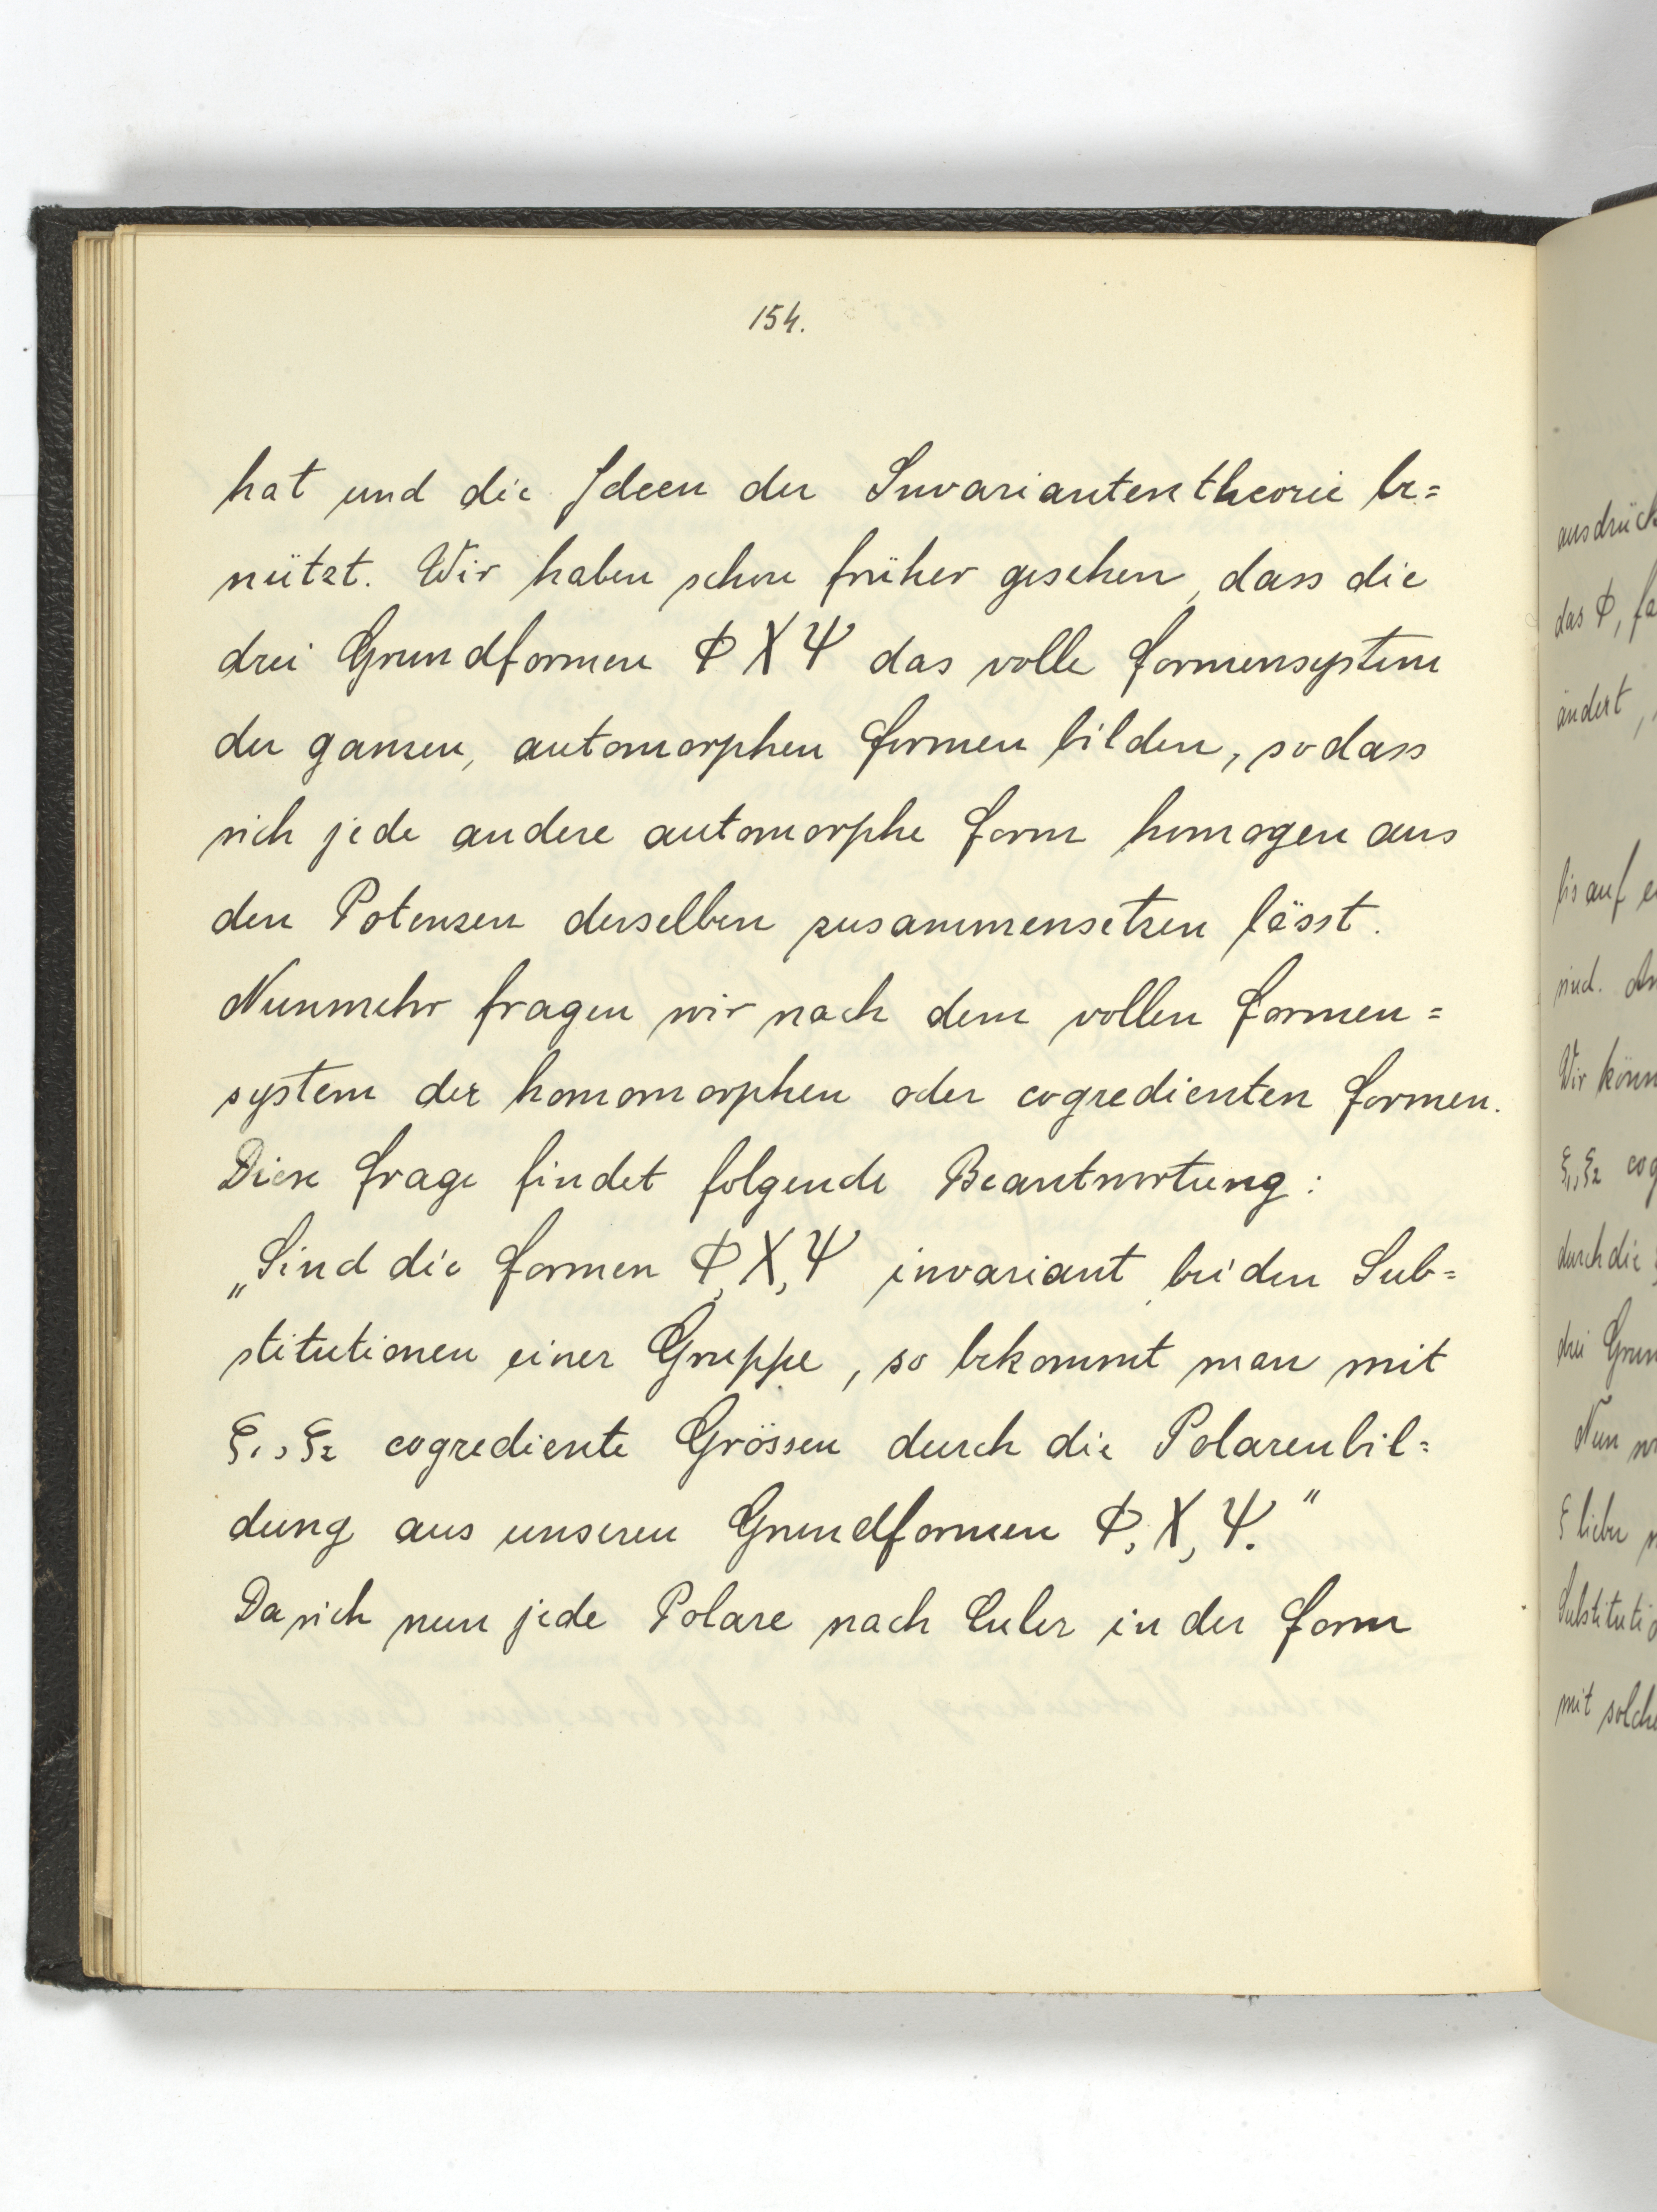 154.
hat und die Ideen der Invariantentheorie be=
nützt. Wir haben schon früher gesehen, dass die
drei Grundformen Φ X Ψ das volle Formensystem
der ganzen, automorphen Formen bilden, sodass
sich jede andere automorphe Form homogen aus
den Potenzen derselben zusammensetzen lässt.
Nunmehr fragen wir nach dem vollen Formen=
system der homomorphen oder cogredienten Formen.
Diese Frage findet folgende Beantwortung:
„Sind die Formen Φ, X, Ψ invariant bei den Sub=
stitutionen einer Gruppe, so bekommt man mit
ξ1, ξ2 cogrediente Grössen durch die Polarenbil=
dung aus unseren Grundformen Φ, X, Ψ."
Da sich nun jede Polare nach Euler in der Form
das Φ,
ändert,
bis auf
sind.
Wir
ξ1, ξ2
durch die
drei
Nun
ξ lieber
mit